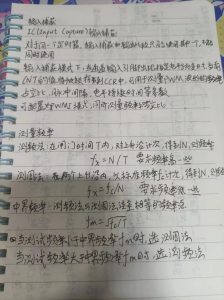 输入捕获
IC(Input Capture)输入捕获
对于同一个定时器，输入捕获和输出比较只能使用其中一个，不能
同时使用
输入捕获模式下，当通道输入引脚出现指定电平跳变时，当前
CNT的值将被锁存到CCR中，可用于测量PWM波形的频率、
占空比、脉冲间隔、电平持续时间等参数
可配置为PWMI模式，同时测量频率和占空比
测量频率
测频法：在闸门时间T内，对上升沿计次，得到N，则频率
fx = N/T
测周法：在两个上升沿内，以标准频率fc计次，得到N，则频率
fx = fc/N
中界频率：测频法与测周法误差相等的频率点
fm = √fc/T
当测试频率小于中界频率fm时，选测周法
当测试频率大于中界频率fm时，选测频法